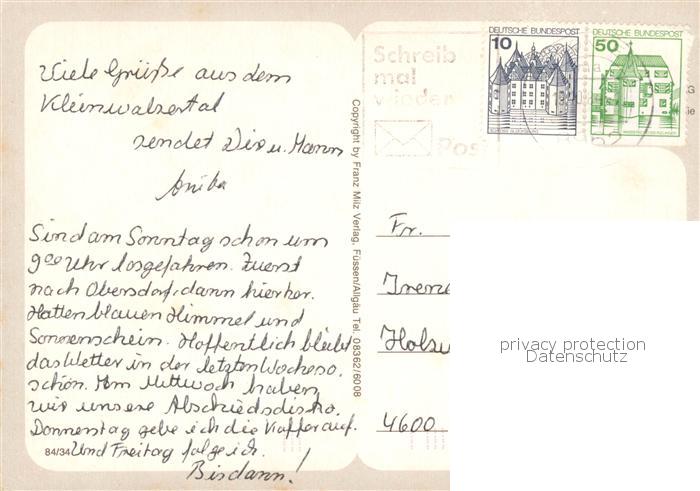 Viele Grüße aus dem
Kleinwalsertal
sendet Dir u. Mann
Anika
Sind am Sonntag schon um
9⁰⁰ Uhr losgefahren. Zuerst
nach Obersdorf, dann hierher.
Hatten blauen Himmel und
Sonnenschein. Hoffentlich bleibt
das Wetter in der letzten Woche so
schön. Am Mittwoch haben
wir unsere Abschiedsdisko.
Donnerstag gebe ich die Koffer auf.
Und Freitag folge ich.
Bis dann!
84/34
Copyright by Franz Milz Verlag, Füssen/Allgäu Tel. 08362/6008
Schreib
mal
wieder
Post
DEUTSCHE BUNDESPOST
10
DEUTSCHE BUNDESPOST
50
Fr.
Irene
4600
privacy protection
Datenschutz